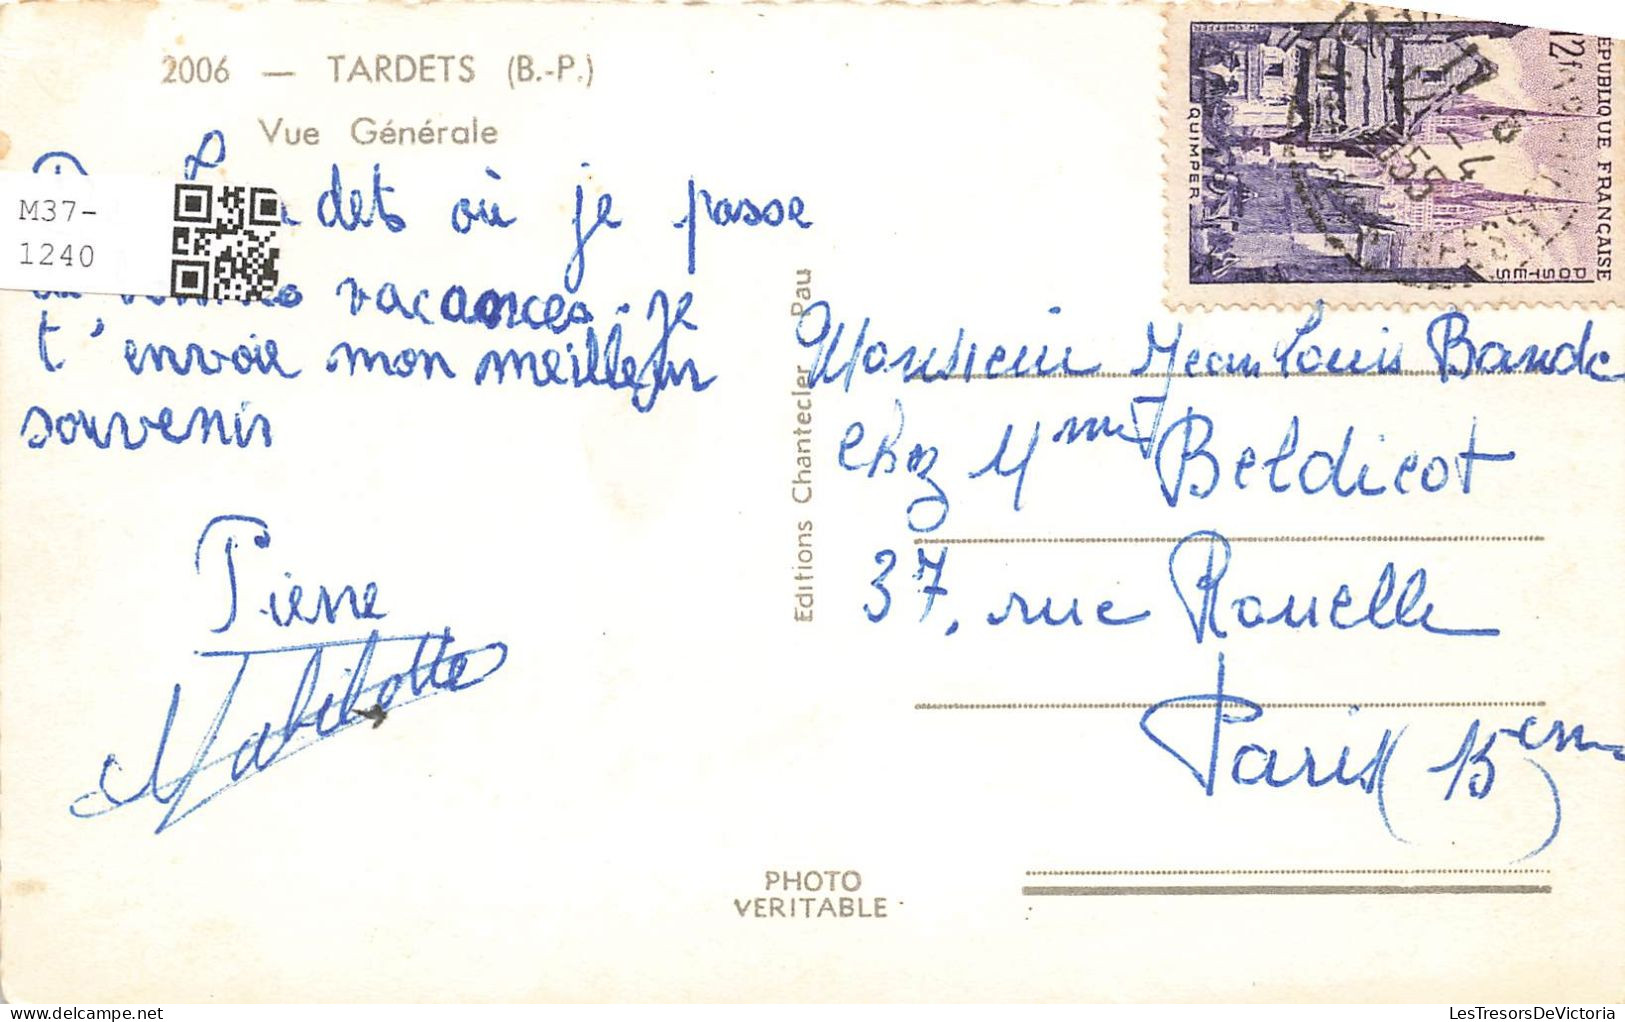 2006 — TARDETS (B.-P.)
Vue Générale
dets où je passe
vacances. je
t'envoie mon meilleur
souvenir
Pierre
M37-
1240
Editions Chantecler Pau
PHOTO
VERITABLE
12f
REPUBLIQUE FRANÇAISE
POSTES
QUIMPER
17
-4
1955
Monsieur Jean Louis
chez Mme Beldicot
37, rue Rouelle
Paris (15em)
LesTresorsDeVictoria